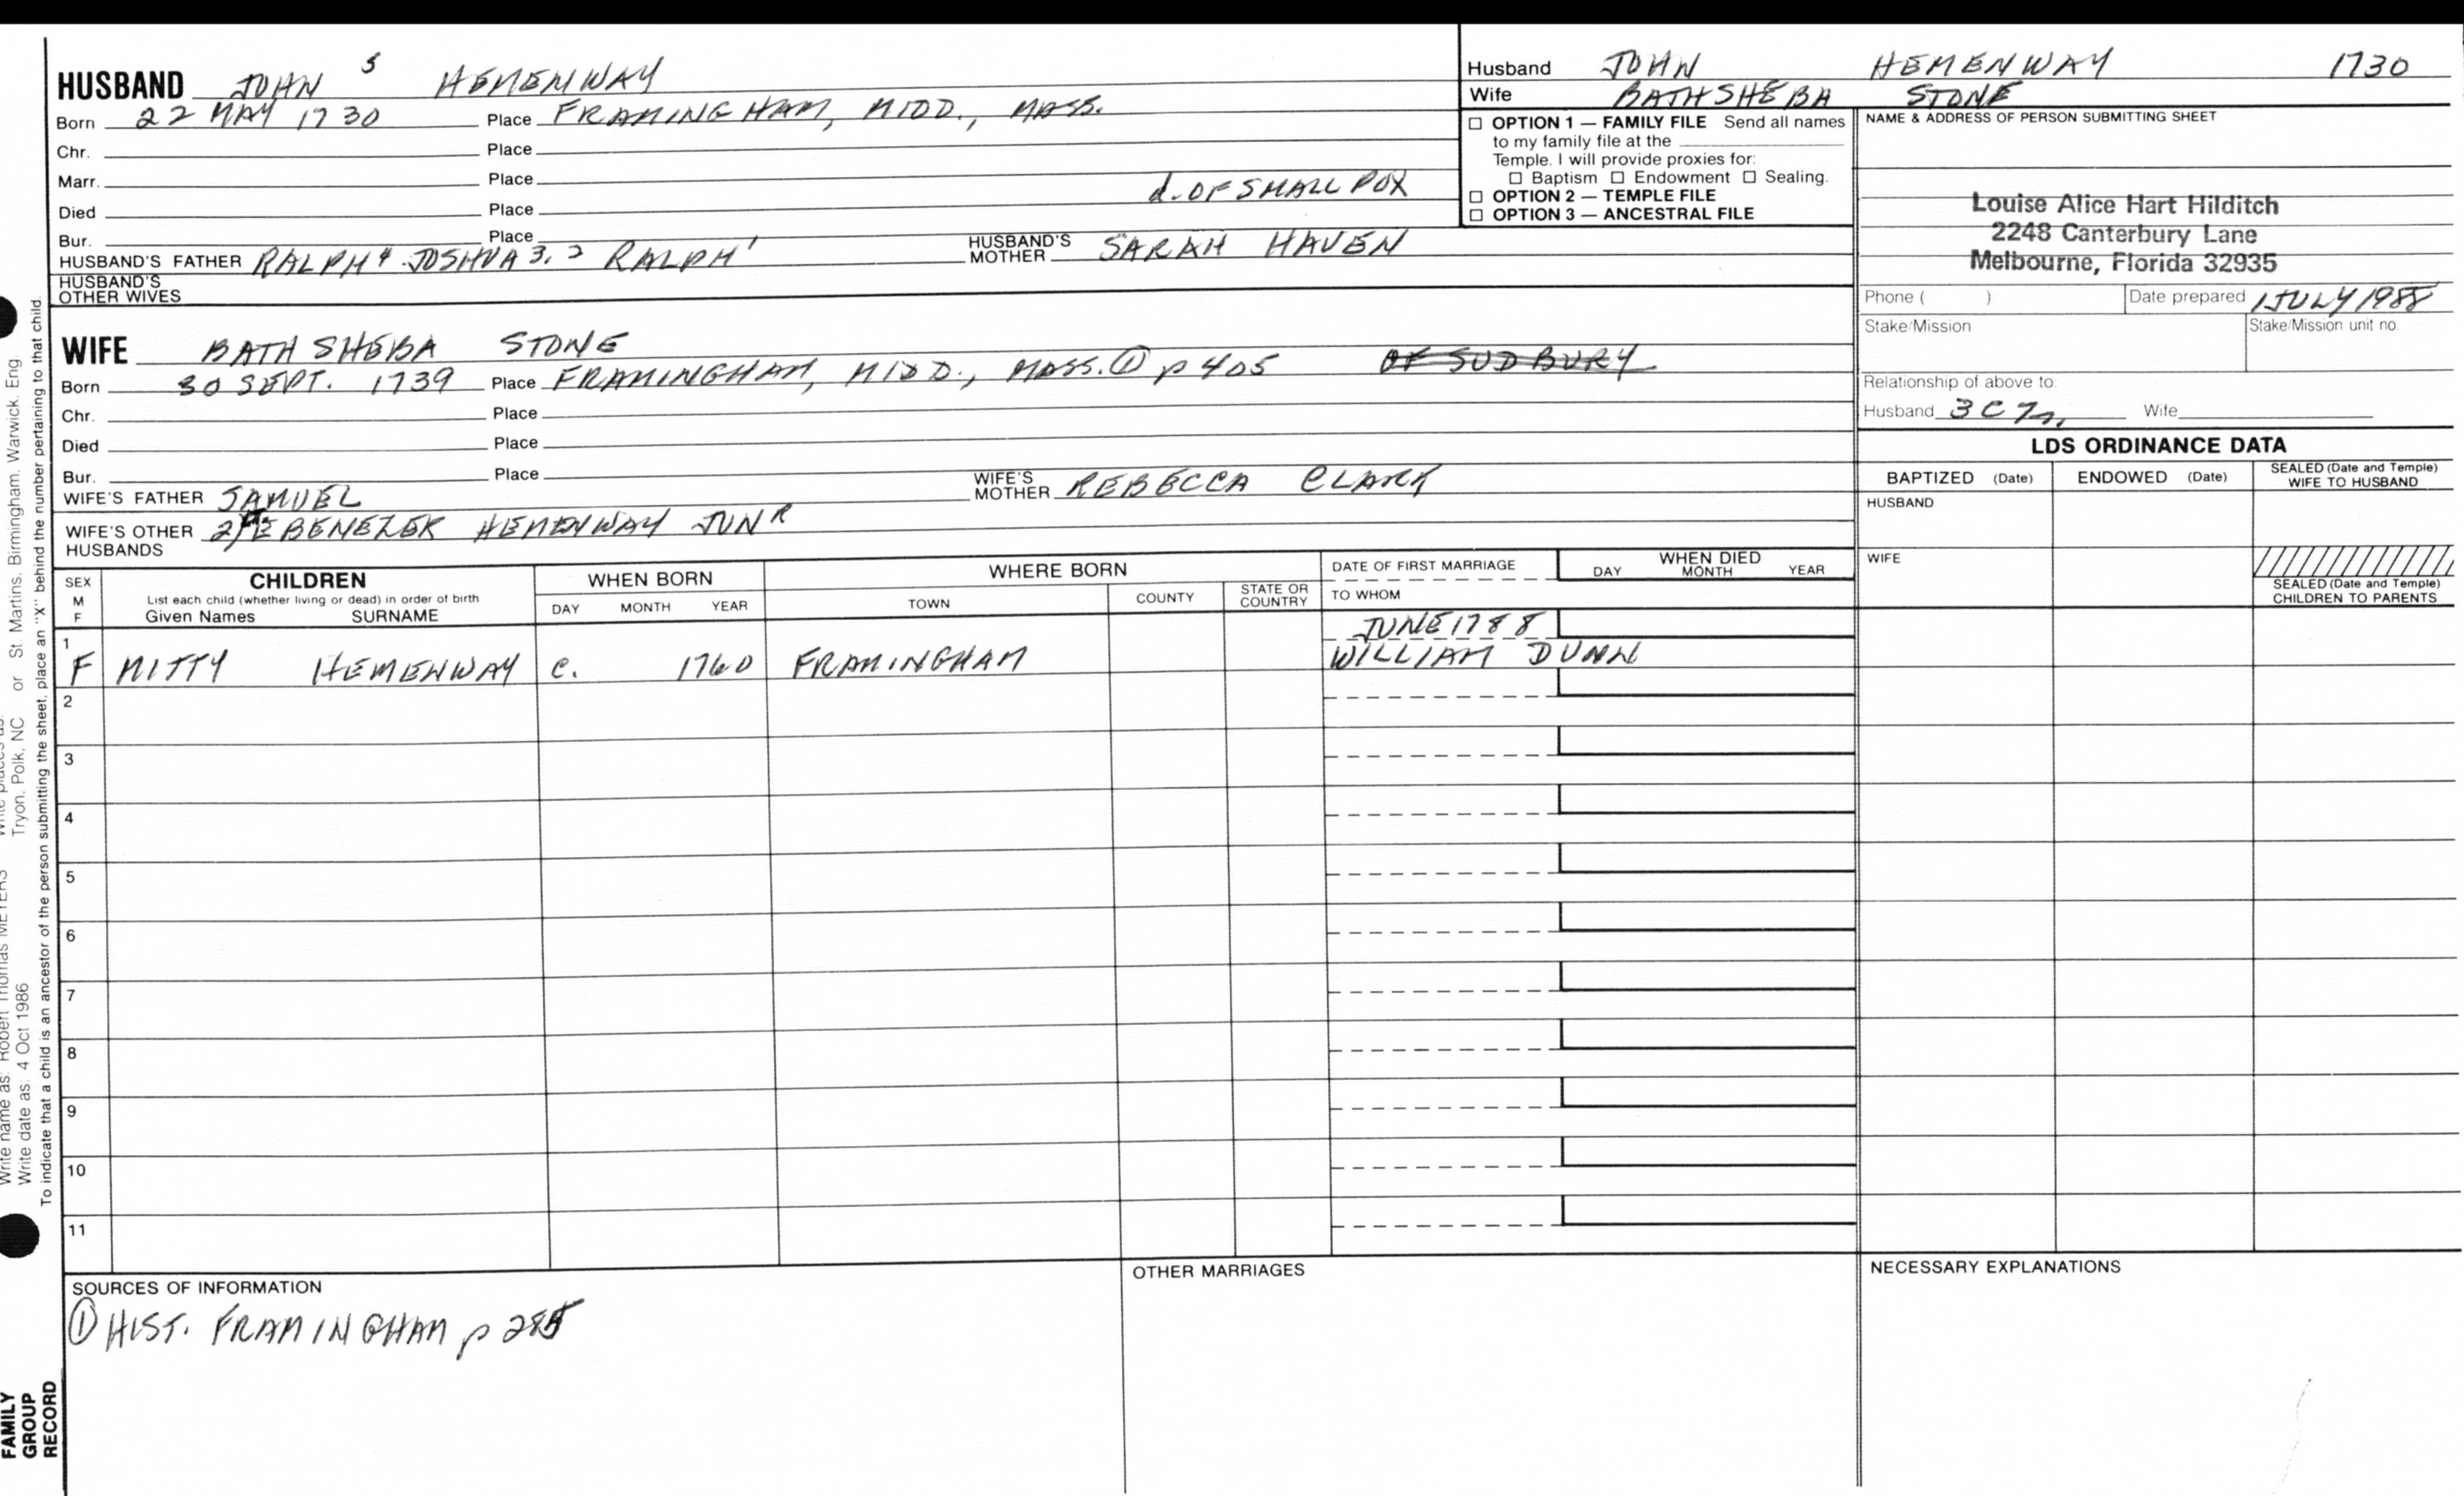 HUSBAND JOHN 5 HEMENWAY
Born 22 MAY 1730 Place FRAMINGHAM, MIDD., MASS.
Chr. Place
Marr. Place
Died Place d. OF SMALL POX
Bur. Place
HUSBAND'S FATHER RALPH 4 JOSHUA 3, 2 RALPH 1 HUSBAND'S MOTHER SARAH HAVEN
HUSBAND'S OTHER WIVES
WIFE BATHSHEBA STONE
Born 30 SEPT. 1739 Place FRAMINGHAM, MIDD., MASS. ① p 405 OF SUDBURY
Chr. Place
Died Place
Bur. Place
WIFE'S FATHER SAMUEL WIFE'S MOTHER REBECCA CLARK
WIFE'S OTHER HUSBANDS EBENEZER HEMENWAY JUNR
Husband JOHN HEMENWAY 1730
Wife BATHSHEBA STONE
☐ OPTION 1 — FAMILY FILE Send all names
to my family file at the
Temple. I will provide proxies for:
☐ Baptism ☐ Endowment ☐ Sealing.
☐ OPTION 2 — TEMPLE FILE
☐ OPTION 3 — ANCESTRAL FILE
NAME & ADDRESS OF PERSON SUBMITTING SHEET
Louise Alice Hart Hilditch
2248 Canterbury Lane
Melbourne, Florida 32935
Phone ( ) Date prepared 1 JULY 1988
Stake/Mission Stake/Mission unit no.
Relationship of above to:
Husband 3C7r. Wife
LDS ORDINANCE DATA
BAPTIZED (Date) ENDOWED (Date) SEALED (Date and Temple) WIFE TO HUSBAND
HUSBAND
WIFE
SEALED (Date and Temple) CHILDREN TO PARENTS
SEX M F
CHILDREN
List each child (whether living or dead) in order of birth
Given Names SURNAME
WHEN BORN
DAY MONTH YEAR
WHERE BORN
TOWN COUNTY STATE OR COUNTRY
DATE OF FIRST MARRIAGE
TO WHOM
WHEN DIED
DAY MONTH YEAR
1 JUNE 1788
F MITTY HEMENWAY c. 1760 FRAMINGHAM WILLIAM DUNN
2
3
4
5
6
7
8
9
10
11
SOURCES OF INFORMATION
① HIST. FRAMINGHAM p 285
OTHER MARRIAGES
NECESSARY EXPLANATIONS
Tryon, Polk, NC or St. Martins, Birmingham, Warwick, Eng.
Write name as: Robert Thomas MEYERS
Write date as: 4 Oct 1986
To indicate that a child is an ancestor of the person submitting the sheet, place an "X" behind the number pertaining to that child.
FAMILY
GROUP
RECORD